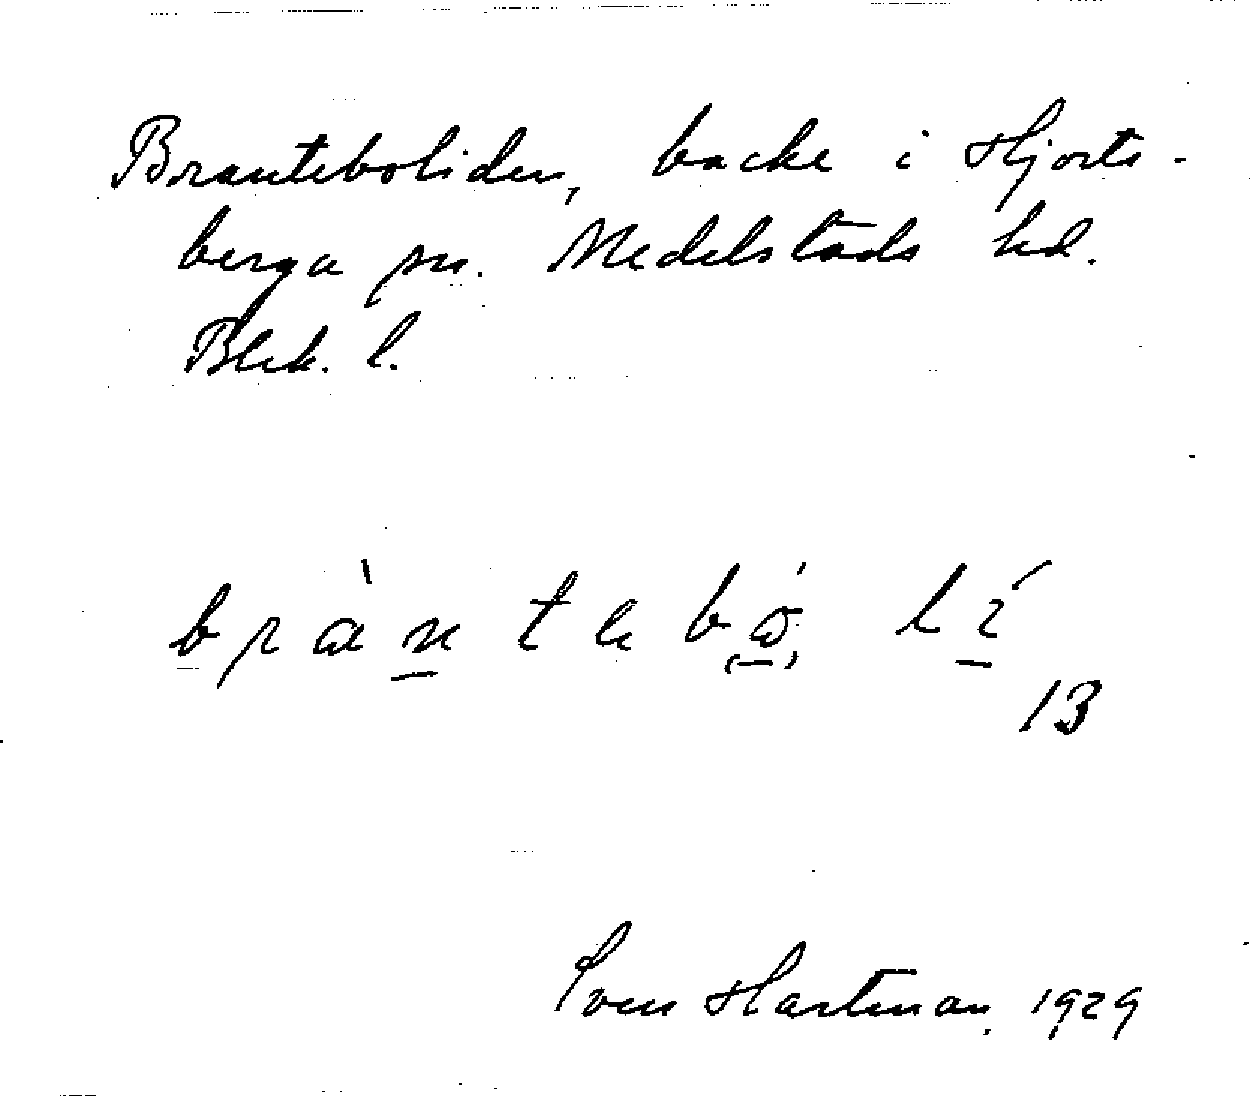 Branteboliden, backe i Hjorts-
berga sn. Medelstads hd.
Blek. l.
bràntebo lí
13
Sven Hartman. 1929